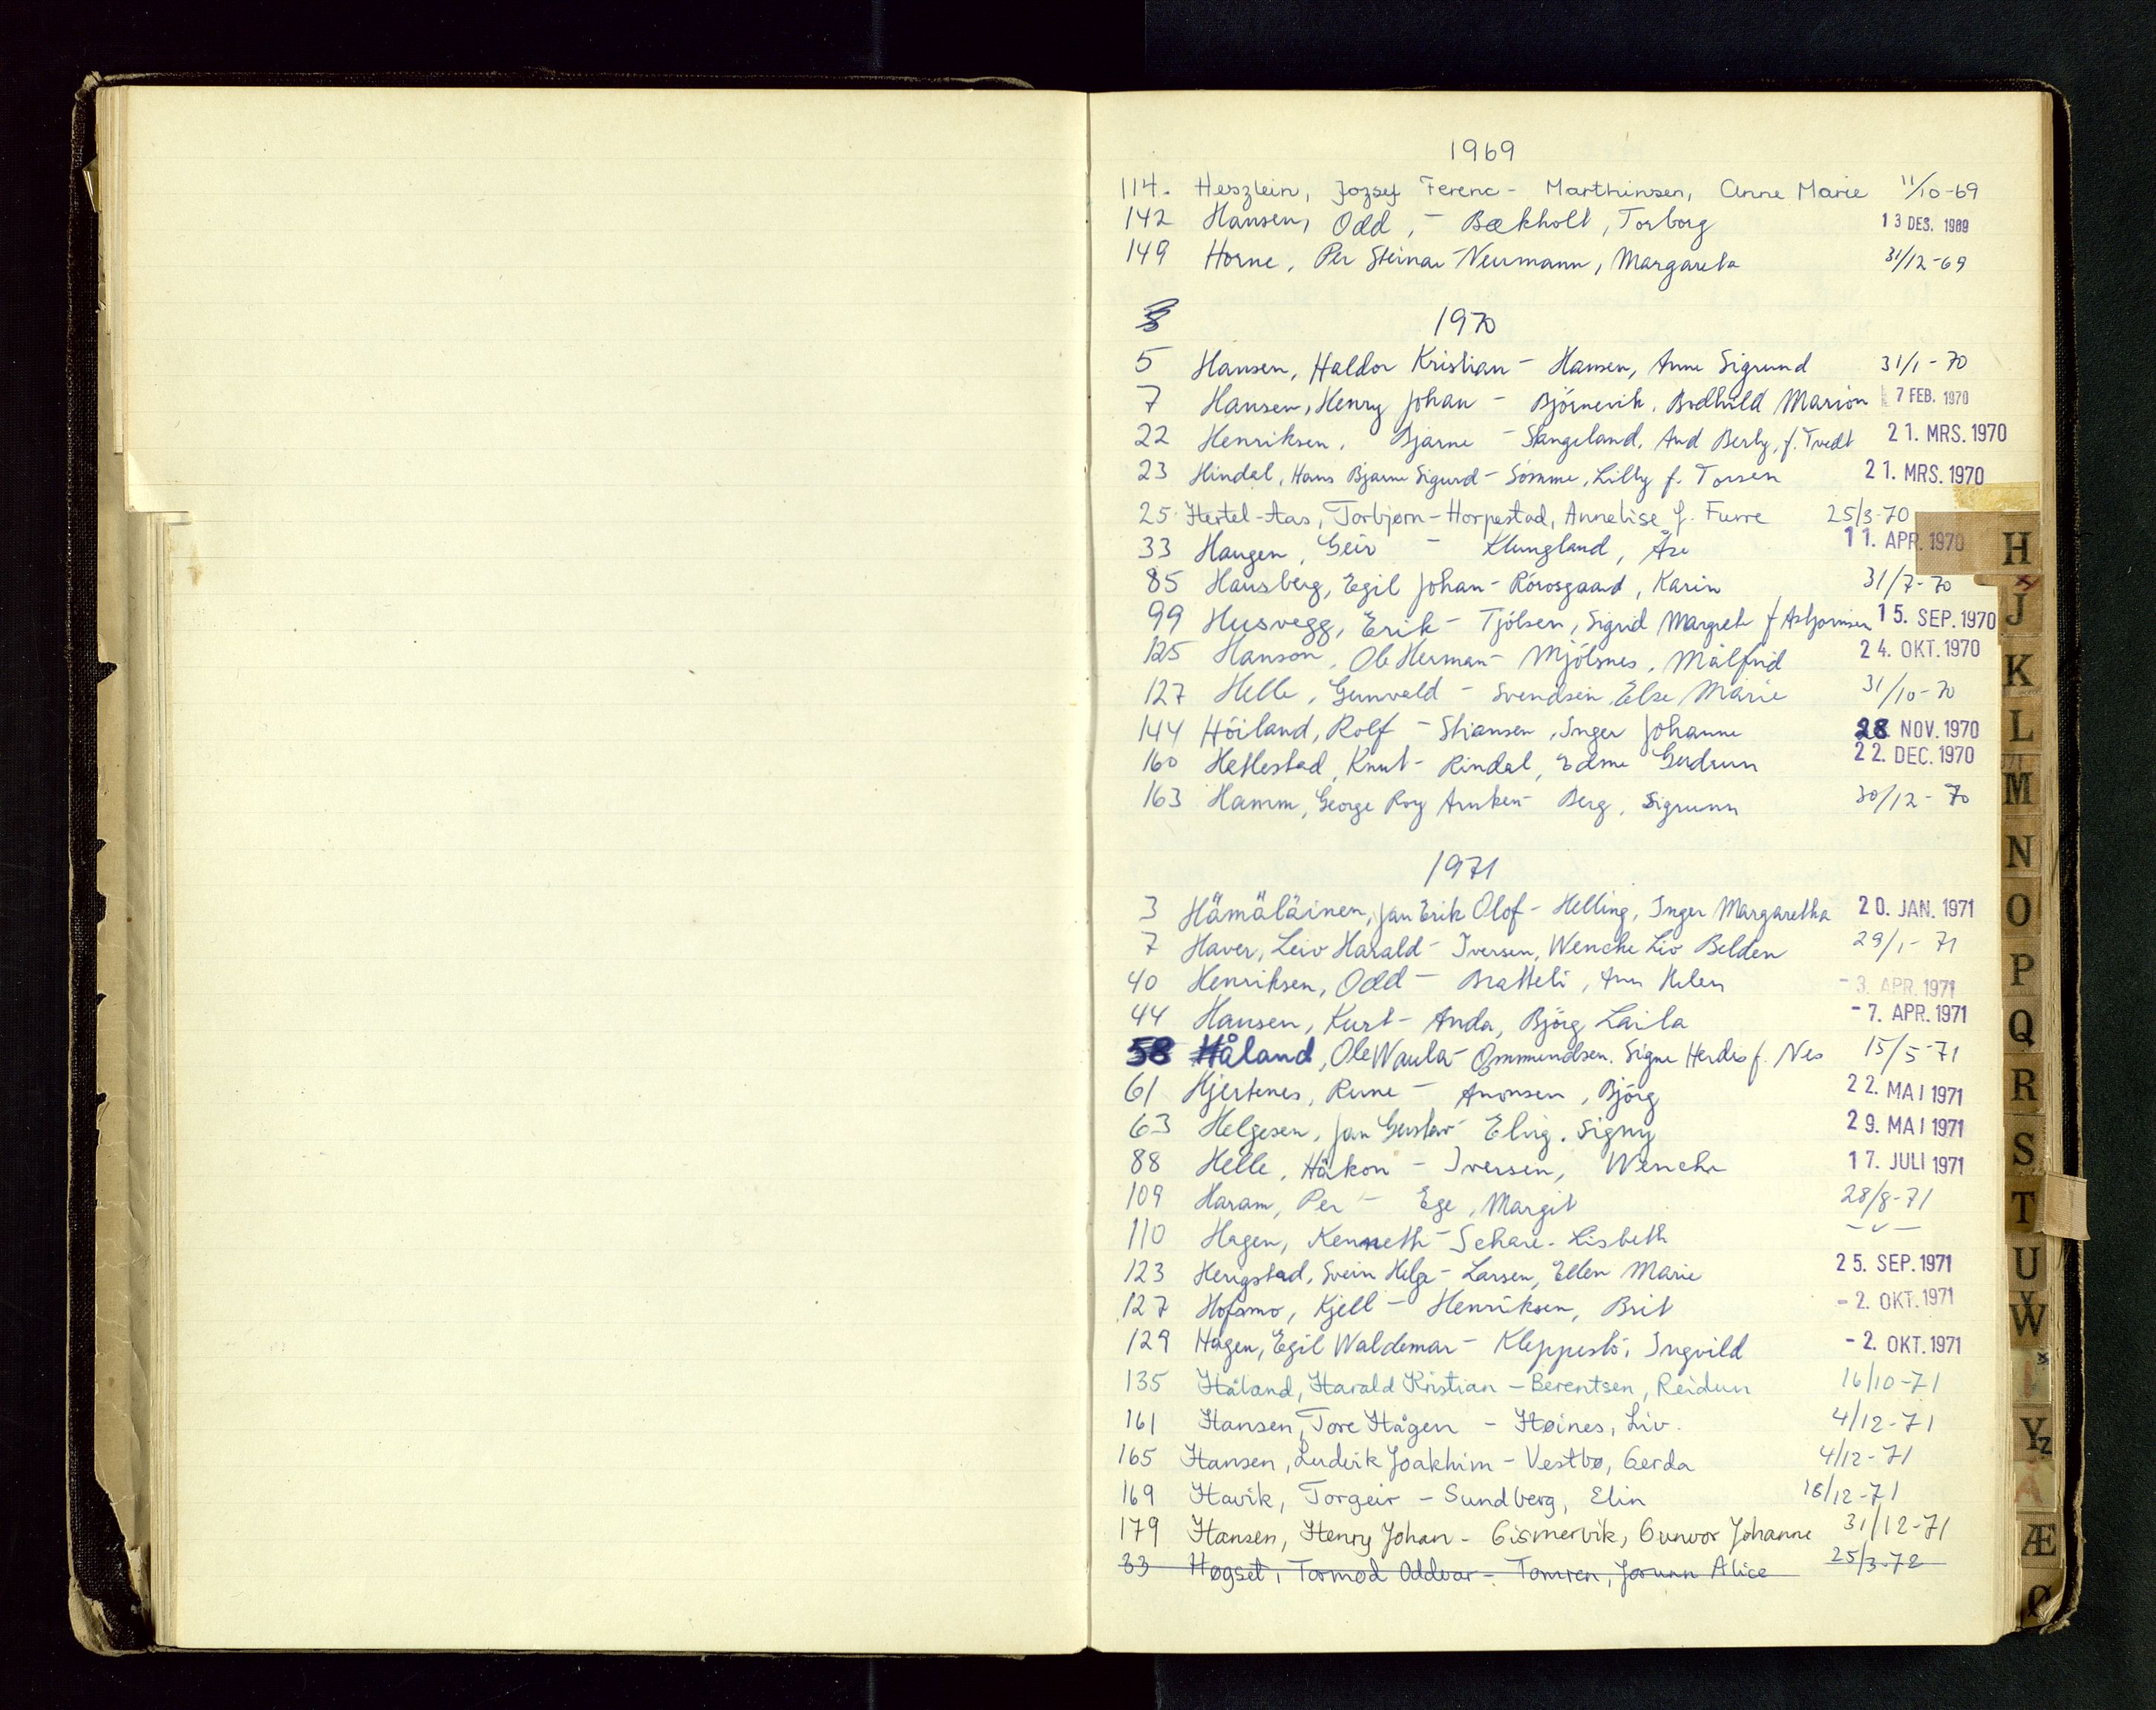 1969
114. Heszlein, Jozsef Ferenc - Marthinsen, Anne Marie 11/10-69
142 Hansen, Odd, - Bækholt, Torborg 13 DES. 1969
149 Horne, Per Steinar - Neumann, Margareta 31/12-69
1970
5 Hansen, Haldor Kristian - Hansen, Anne Sigrund 31/1-70
7 Hansen, Henry Johan - Björnevik, Bodhild Marion 7 FEB. 1970
22 Henriksen, Bjarne - Sangeland, Aud Berly, f. Tvedt 21. MRS. 1970
23 Hindal, Hans Bjarne Sigurd - Sömme, Lilly f. Torsen 21. MRS. 1970
25 Hertel-Aas, Torbjørn - Horpestad, Annelise f. Furre 25/3-70
33 Haugen, Geir - Klungland, Åse 11. APR. 1970
85 Hausberg, Egil Johan - Rörosgaard, Karin 31/7-70
99 Husvegg, Erik - Tjölsen, Sigrid Margreth f Asbjörnsen 15. SEP. 1970
125 Hanson, Ole Herman - Mjölsnes, Målfrid 24. OKT. 1970
127 Helle, Gunvald - Svendsen, Else Marie 31/10-70
144 Höiland, Rolf - Stiansen, Inger Johanne 28 NOV. 1970
160 Hatlestad, Knut - Rindal, Edme Gudrun 22. DEC. 1970
163 Hamm, George Roy - Berg, Sigrunn 30/12-70
1971
3 Hämäläinen, Jan Erik Olof - Helling, Inger Margaretha 20. JAN. 1971
7 Haver, Leiv Harald - Iversen, Wenche Liv Belden 29/1-71
40 Henriksen, Odd - Bratteli, Ann Helen - 3. APR. 1971
44 Hansen, Kurt - Anda, Björg Laila - 7. APR. 1971
58 Håland, Ole Waula - Ommundsen, Signe Herdis f. Nes 15/5-71
61 Hjertenes, Rune - Aronsen, Björg 22. MAI 1971
63 Helgesen, Jan Gustav - Elvig, Signy 29. MAI 1971
88 Helle, Håkon - Iversen, Wenche 17. JULI 1971
109 Haram, Per - Ege, Margit 28/8-71
110 Hagen, Kenneth - Schare, Lisbeth - " -
123 Hengstad, Svein Helge - Larsen, Ellen Marie 25. SEP. 1971
127 Hofsmo, Kjell - Henriksen, Brit - 2. OKT. 1971
129 Hagen, Egil Waldemar - Kleppestö, Ingvild - 2. OKT. 1971
135 Håland, Harald Kristian - Berentsen, Reidun 16/10-71
161 Hansen, Tore Hågen - Høines, Liv. 4/12-71
165 Hansen, Ludvik Joakhim - Vestbø, Gerda 4/12-71
169 Havik, Torgeir - Sundberg, Elin 18/12-71
179 Hansen, Henry Johan - Gismervik, Gunvor Johanne 31/12-71
33 Høgset, Tormod Oddvar - Tomren, Jorunn Alice 25/3-72
H
J
K
L
M
N
O
P
Q
R
S
T
U
W
Y
Z
A
Æ
Ø